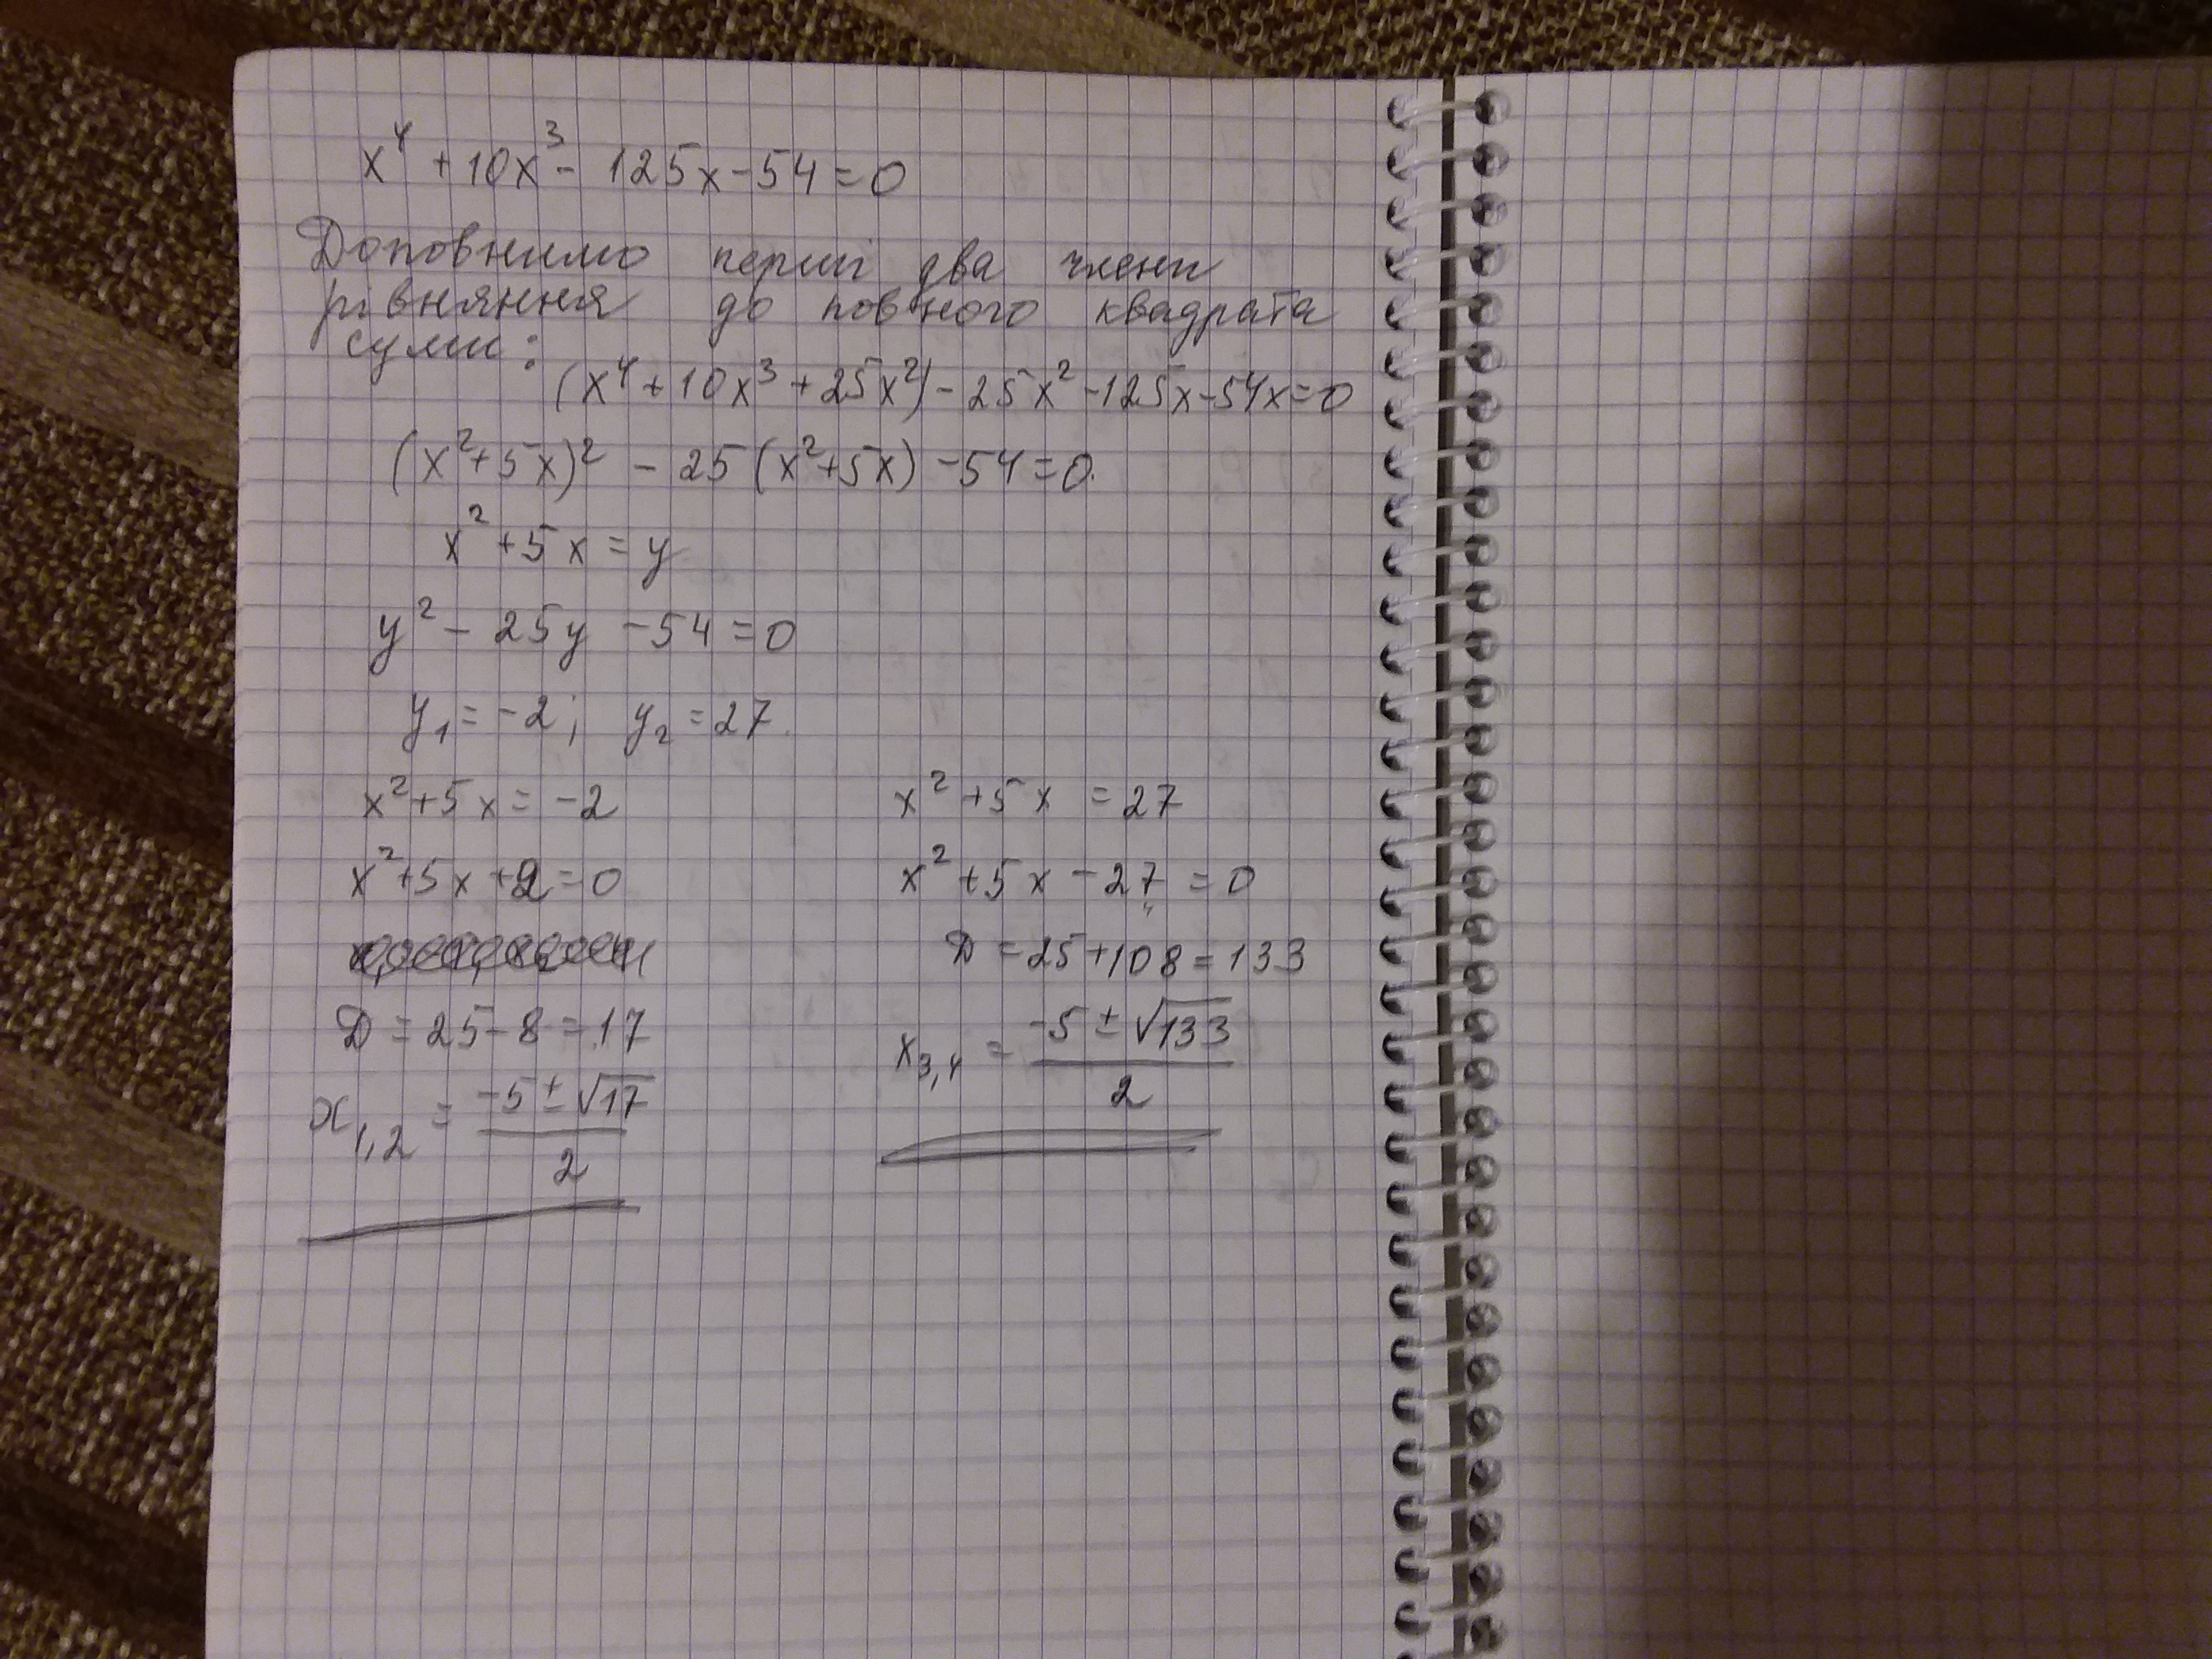 x⁴ + 10x³ - 125x - 54 = 0
Доповнимо перші два члени
рівняння до повного квадрата
суми:
(x⁴ + 10x³ + 25x²) - 25x² - 125x - 54x = 0
(x² + 5x)² - 25(x² + 5x) - 54 = 0.
x² + 5x = y
y² - 25y - 54 = 0
y₁ = -2; y₂ = 27.
x² + 5x = -2
x² + 5x + 2 = 0
D = 25 - 8 = 17
x₁,₂ = (-5 ± √17)/2
x² + 5x = 27
x² + 5x - 27 = 0
D = 25 + 108 = 133
x₃,₄ = (-5 ± √133)/2